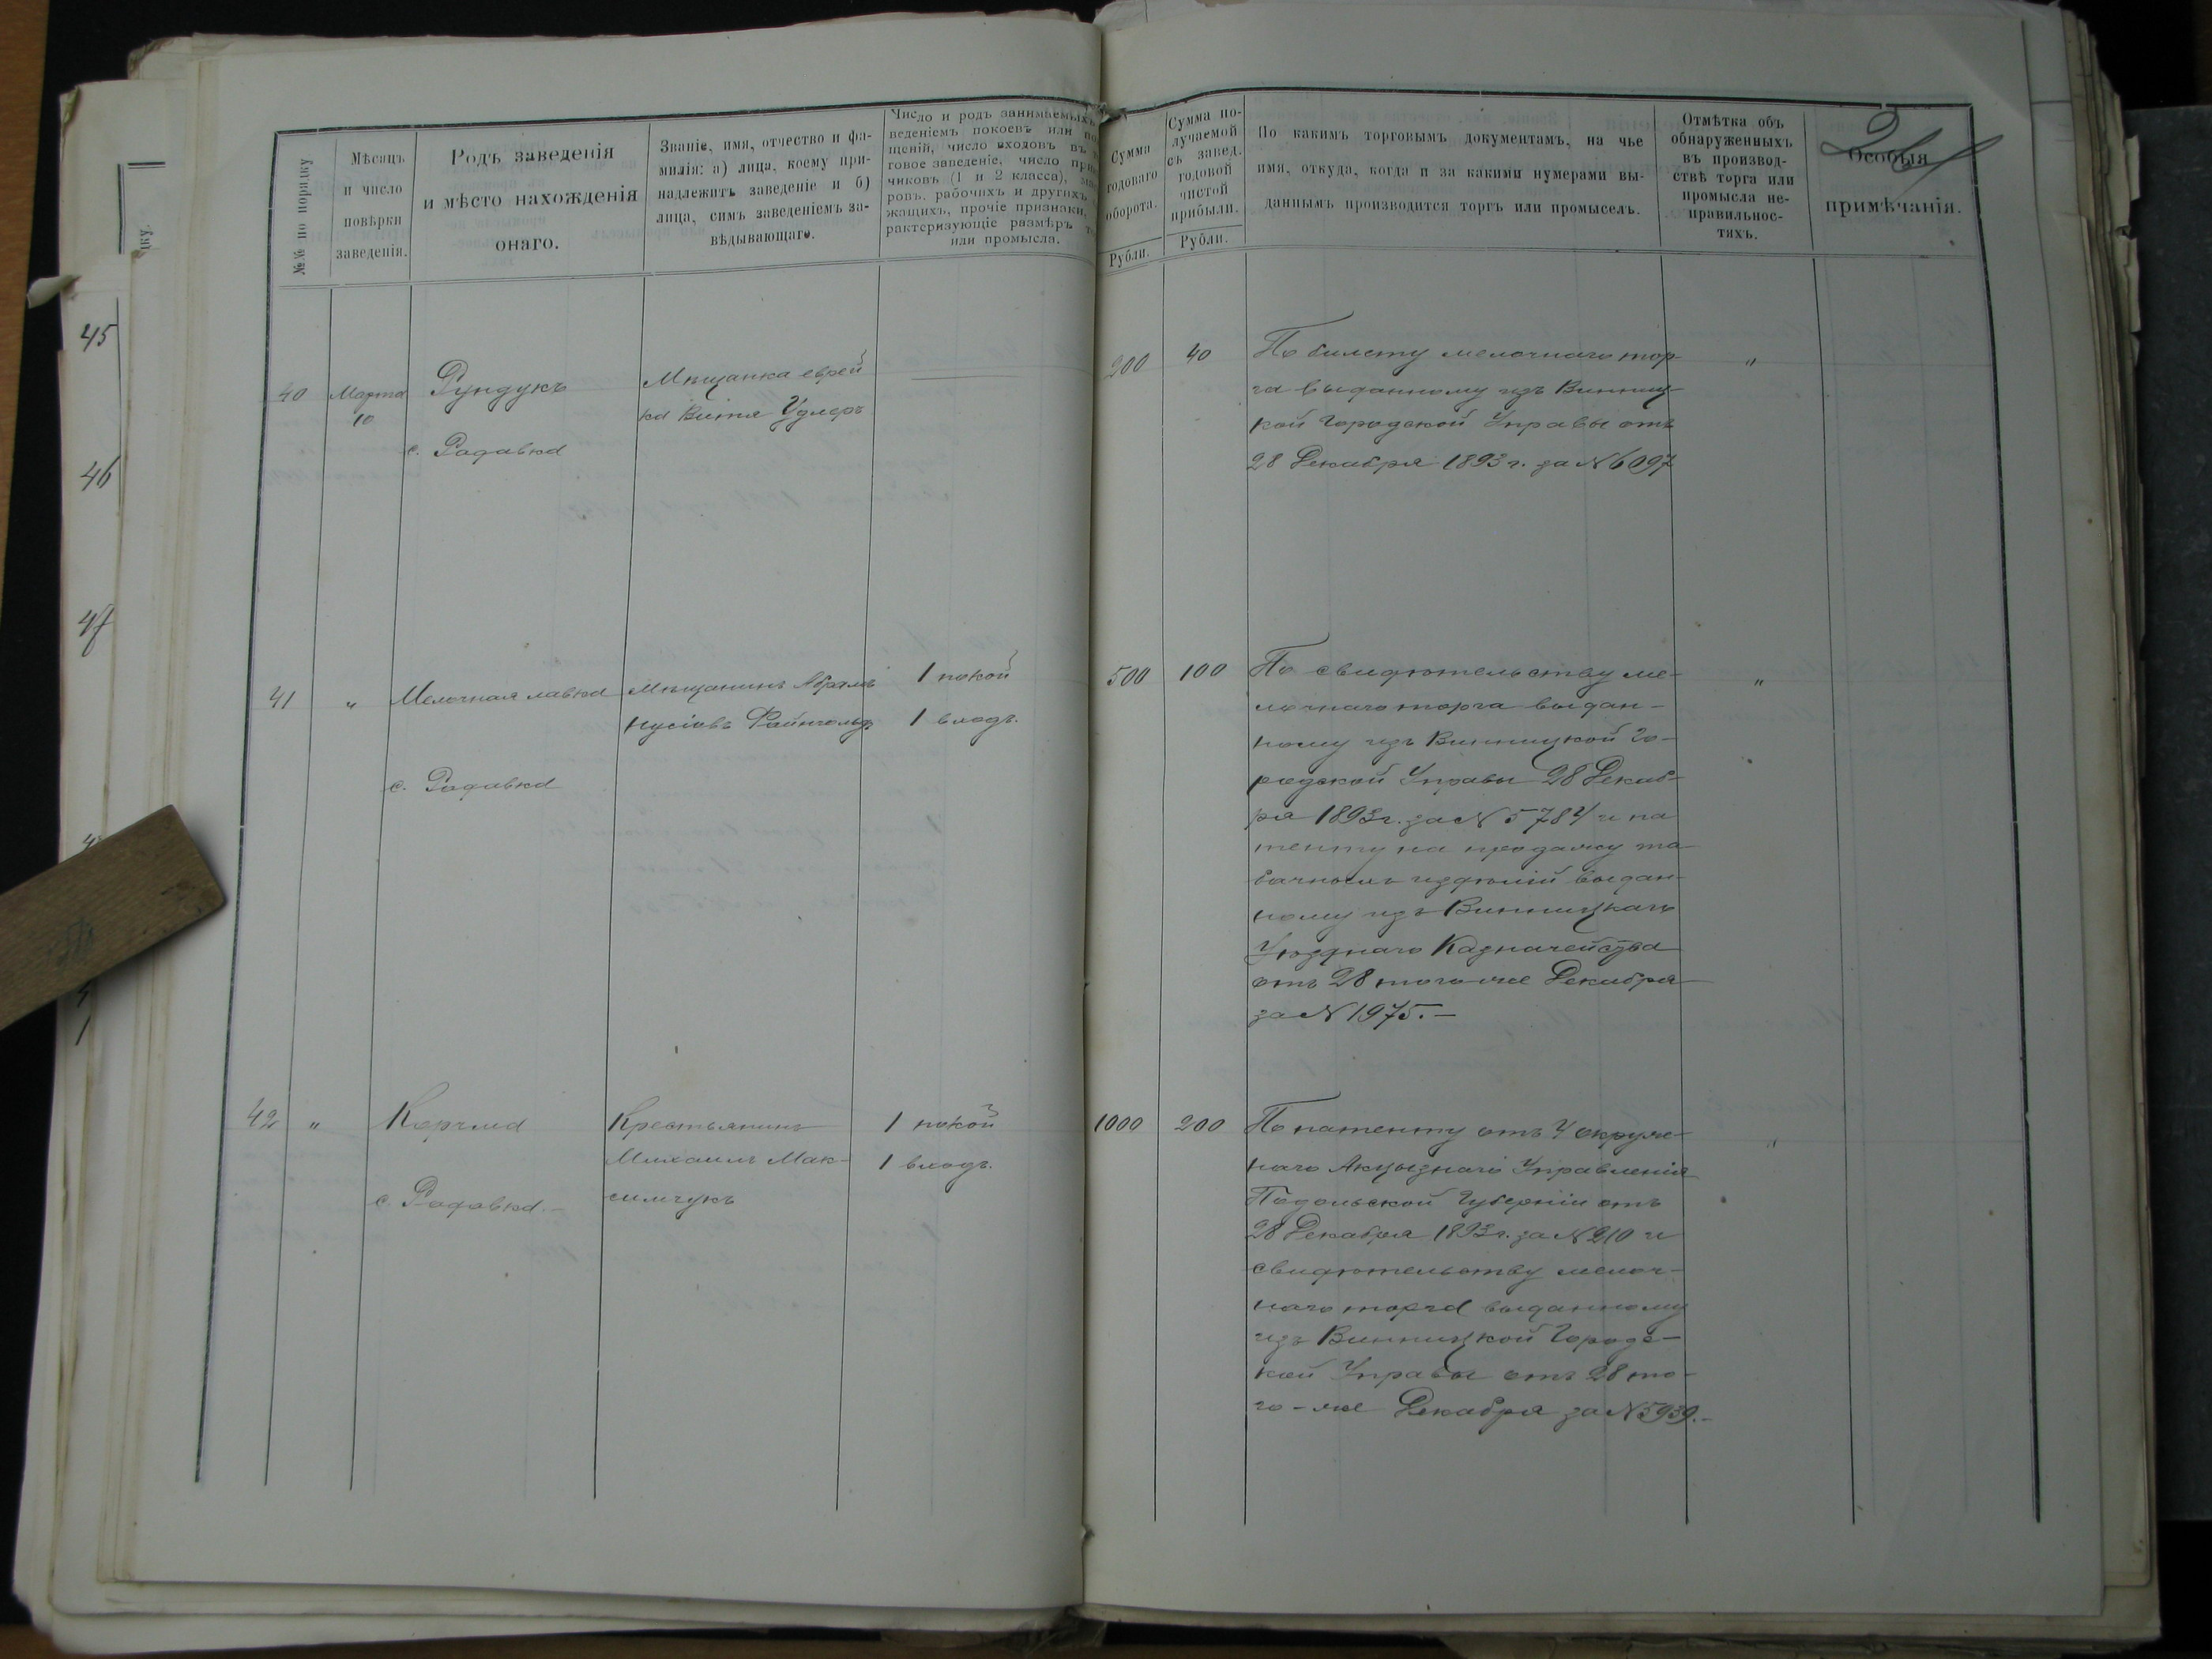 №№ по порядку
Мѣсяцъ
и число
повѣрки
заведенія.
Родъ заведенія
и мѣсто нахожденія
онаго.
Званіе, имя, отчество и фа-
милія: а) лица, коему при-
надлежитъ заведеніе и б)
лица, симъ заведеніемъ за-
вѣдывающаго.
Число и родъ занимаемыхъ
веденіемъ покоевъ или по
щеній, число входовъ въ
говое заведеніе, число при
чиковъ (1 и 2 класса),
ровъ, рабочихъ и другихъ
жащихъ, прочіе признаки,
рактеризующіе размѣръ
или промысла.
Сумма
годоваго
оборота.
Рубли.
Сумма по-
лучаемой
съ завед.
годовой
чистой
прибыли.
Рубли.
По какимъ торговымъ документамъ, на чье
имя, откуда, когда и за какими нумерами вы-
даннымъ производится торгъ или промыселъ.
Отмѣтка объ
обнаруженныхъ
въ производ-
ствѣ торга или
промысла не-
правильнос-
тяхъ.
Особыя
примѣчанія.
40
Марта
10
Рундукъ
с. Радавка
Мѣщанка еврей
ка Витя Удлеръ
200
40
По билету мелочнаго тор-
га выданному изъ Винниц-
кой Городской Управы отъ
28 Декабря 1893 г. за № 6097
"
41
"
Мелочная лавка
с. Радавка
Мѣщанинъ Абрамъ
Нусіовъ Файнгольдъ
1 покой
1 входъ.
500
100
По свидѣтельству ме-
лочнаго торга выдан-
ному изъ Винницкой Го-
родской Управы 28 Декаб-
ря 1893 г. за № 5784 и па
тенту на продажу та-
бачныхъ издѣлій выдан-
ному изъ Винницкаго
Уѣзднаго Казначейства
отъ 28 того же Декабря
за № 1975.-
"
42
"
Корчма
с. Радавка.-
Крестьянинъ
Михаилъ Мак-
симчукъ
1 покой
1 входъ.
1000
200
По патенту отъ 4 окруж-
наго Акцизнаго Управленія
Подольской Губерніи отъ
28 Декабря 1893 г. за № 210 и
свидѣтельству мелоч-
наго торга выданному
изъ Винницкой Городс-
кой Управы отъ 28 то-
го-же Декабря за № 5939.-
"
45
46
47